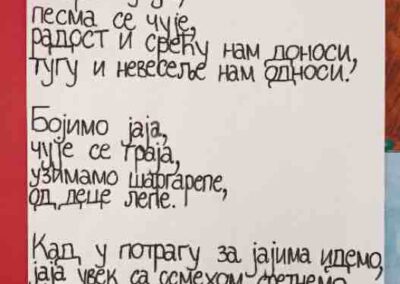 песма се чује,
радост и срећу нам доноси,
тугу и невесеље нам односи.
Бојимо јаја,
чује се граја,
узимамо шаргарепе,
од деце лепе.
Кад у потрагу за јајима идемо,
јаја увек са осмехом сретнемо